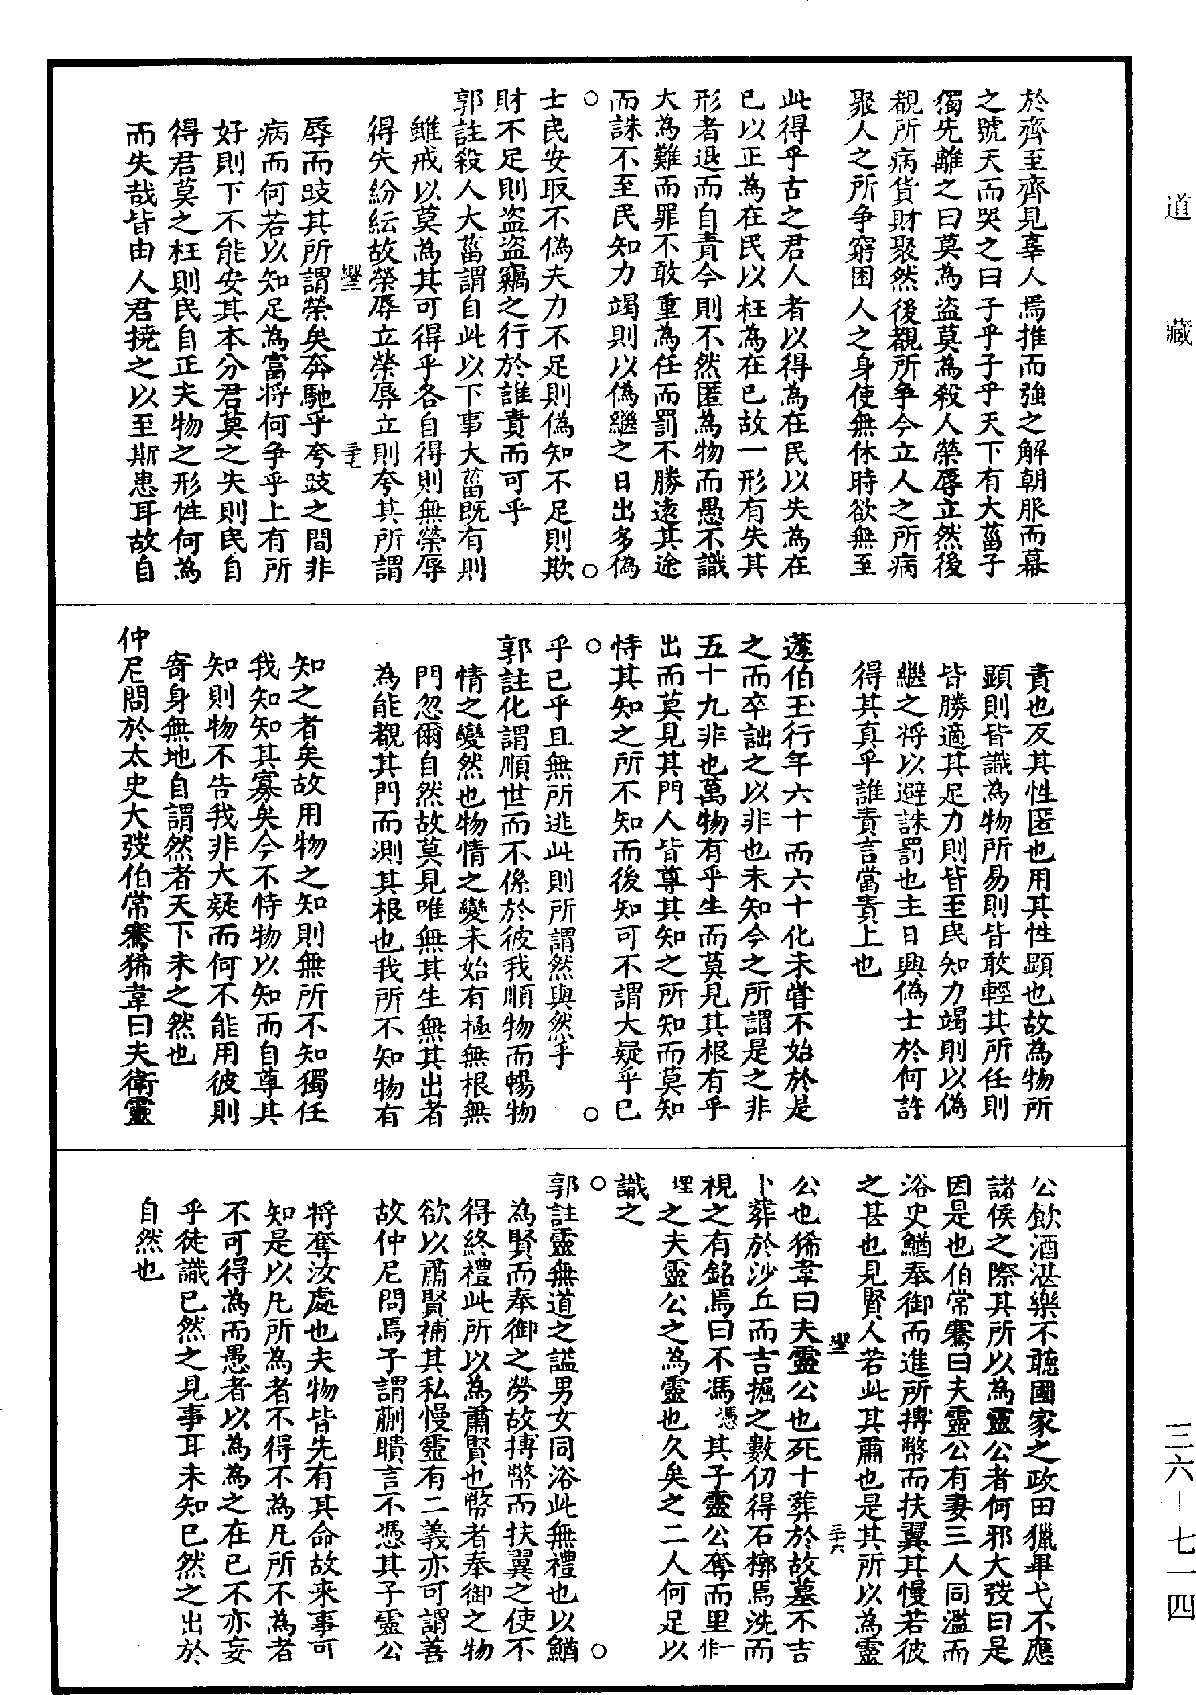 於齊至齊見辜人焉推而強之解朝服而幕
之號天而哭之曰子乎子乎天下有大菑子
獨先離之曰莫為盜莫為殺人榮辱立然後
覩所病貨財聚然後覩所争今立人之所病
聚人之所争窮困人之身使無休時欲無至
此得乎古之君人者以得為在民以失為在
已以正為在民以枉為在已故一形有失其
形者退而自責今則不然匿為物而愚不識
大為難而罪不敢重為任而罰不勝遠其途
而誅不至民知力竭則以偽繼之日出多偽
士民安取不偽夫力不足則偽知不足則欺
財不足則盜盜竊之行於誰責而可乎
郭註殺人大菑謂自此以下事大菑既有則
雖戒以莫為其可得乎各自得則無榮辱
得失紛紜故榮辱立榮辱立則夸其所謂
辱而跂其所謂榮矣奔馳乎夸跂之間非
病而何若以知足為富將何争乎上有所
好則下不能安其本分君莫之失則民自
得君莫之枉則民自正夫物之形性何為
而失哉皆由人君撓之以至斯患耳故自
責也反其性匿也用其性顯也故為物所
顯則皆識為物所易則皆敢輕其所任則
皆勝適其足力則皆至民知力竭則以偽
繼之將以避誅罰也主日興偽士於何許
得其真乎誰責言當責上也
蘧伯玉行年六十而六十化未嘗不始於是
之而卒詘之以非也未知今之所謂是之非
五十九非也萬物有乎生而莫見其根有乎
出而莫見其門人皆尊其知之所知而莫知
恃其知之所不知而後知可不謂大疑乎已
乎已乎且無所逃此則所謂然與然乎
郭註化謂順世而不係於彼我順物而暢物
情之變然也物情之變未始有極無根無
門忽爾自然故莫見唯無其生無其出者
為能覩其門而測其根也我所不知物有
知之者矣故用物之知則無所不知獨任
我知知其寡矣今不恃物以知而自尊其
知則物不告我非大疑而何不能用彼則
寄身無地自謂然者天下未之然也
仲尼問於太史大弢伯常騫狶韋曰夫衛靈
公飲酒湛樂不聽國家之政田獵畢弋不應
諸侯之際其所以為靈公者何邪大弢曰是
因是也伯常騫曰夫靈公有妻三人同濫而
浴史鰌奉御而進所搏幣而扶翼其慢若彼
之甚也見賢人若此其肅也是其所以為靈
公也狶韋曰夫靈公也死卜葬於故墓不吉
卜葬於沙丘而吉掘之數仞得石槨焉洗而
視之有銘焉曰不馮憑其子靈公奪而里作一
埋之夫靈公之為靈也久矣之二人何足以
識之
郭註靈無道之謚男女同浴此無禮也以鰌
為賢而奉御之勞故搏幣而扶翼之使不
得終禮此所以為肅賢也幣者奉御之物
欲以肅賢補其私慢靈有二義亦可謂善
故仲尼問焉子謂蒯聵言不憑其子靈公
將奪汝處也夫物皆先有其命故來事可
知是以凡所為者不得不為凡所不為者
不可得為而愚者以為為之在已不亦妄
乎徒識已然之見事耳未知已然之出於
自然也
道
藏
三六-七一四